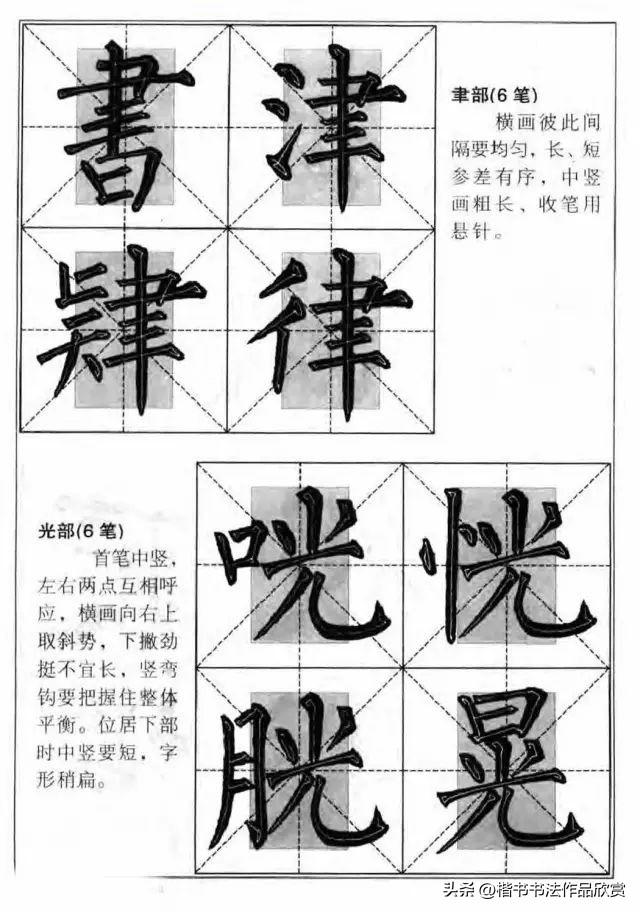 書 津
聿部(6笔)
横画彼此间
隔要均匀，长、短
参差有序，中竖
画粗长、收笔用
悬针。
肄 律
光部(6笔)
首笔中竖，
左右两点互相呼
应，横画向右上
取斜势，下撇劲
挺不宜长，竖弯
钩要把握住整体
平衡。位居下部
时中竖要短，字
形稍扁。
咣 恍
胱 晃
头条 @楷书书法作品欣赏